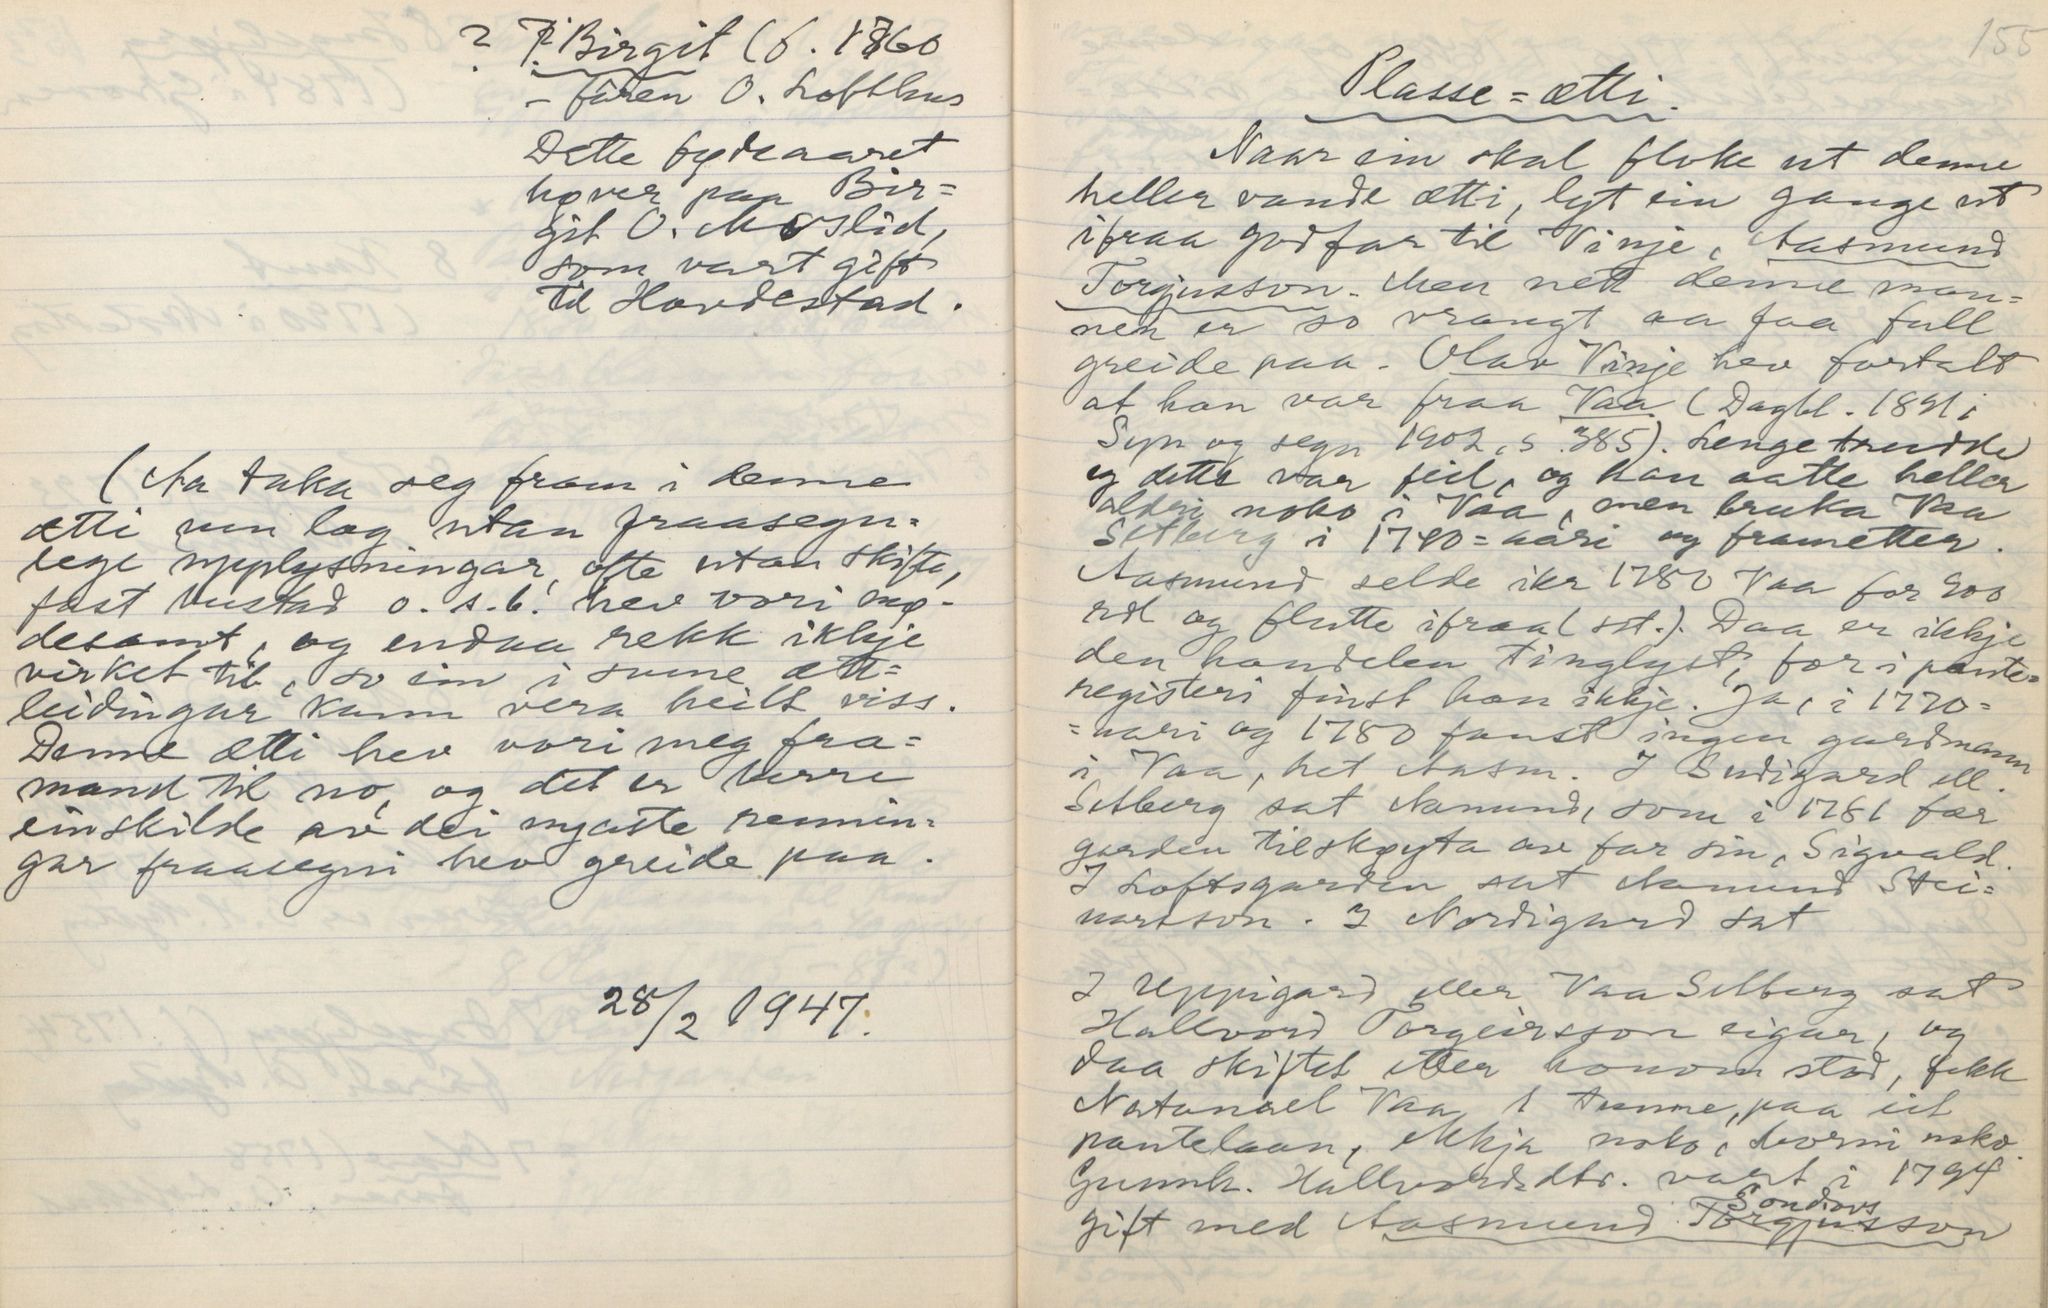 ? 7. Birgit (f. 1760
- fåren O. Lofthus
Dette fydeaaret
høver paa Bir=
git O. Moslid,
som vart gift
til Hovdestad.
(Aa taka seg fram i denne
ætti um lag utan fraasegn-
lege upplysningar, ofte utan skifte,
fast bustad o.s.b. hev vori mø-
desamt, og endaa rekk ikkje
virket til, so ein i sume ætt=
leidingar kann vera heilt viss.
Denne ætti hev vori meg fra=
mand til no, og det er berre
einskilde av dei nyaste rennin=
gar fraasegni hev greide paa.
28/2 1947.
155
Plasse=ætti.
Naar ein skal floke ut denne
heller vande ætti, lyt ein gange ut
ifraa godfar til Vinje, Aasmund
Torgjusson. Men nett denne man=
nen er so vrangt aa faa full
greide paa. Olav Vinje hev fortalt
at han var fraa Vaa (Dagbl. 1891 i
Syn og segn 1902, s. 385). Lenge trudde
eg dette var feil, og han aatte heller
aldri noko i Vaa, men bruka Vaa
Setberg i 1790=aari og frametter.
Aasmund selde ikr 1780 Vaa for 900
rdl og flutte ifraa (sst.). Daa er ikkje
den handelen tinglyst, for i pante=
registeri finst han ikkje. Ja, i 1770=
=aari og 1780 fanst ingen gardmann
i Vaa, het Aasm. I Sudigard ell.
Setberg sat Aamund, som i 1781 fær
garden tilskøyta av far sin, Sigvald.
I Loftsgarden sat Aamund Stei=
narsson. I Nordigard sat
I Uppigard eller Vaa Setberg sat
Hallvord Torgeirsson eigar, og
daa skiftet etter honom stod, fekk
Natanael Vaa 1 tunne, paa eit
pantelaan, ekkja noko, borni noko.
Gunnh. Hallvordsdtr. vart i 1794
Sondovs
gift med Aasmund Torgjusson